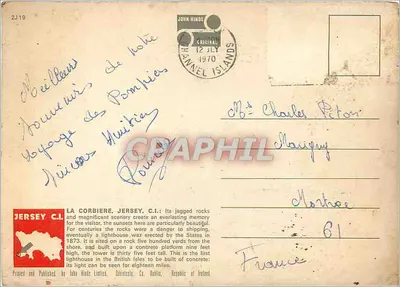 2J19
JOHN HINDE
ORIGINAL
12 JLY
1970
CHANNEL ISLANDS
Meilleurs
souvenirs de notre
voyage des Pompiers
CPARAMA
Mr Charles
Marigny
Mortrée
61
France
JERSEY C.I.
LA CORBIERE, JERSEY, C.I.: Its jagged rocks
and magnificent scenery create an everlasting memory
for the visitor, the sunsets here are particularly beautiful.
For centuries the rocks were a danger to shipping,
eventually a lighthouse was erected by the States in
1873. It is sited on a rock five hundred yards from the
shore, and built upon a concrete platform nine feet
high, the tower is thirty five feet tall. This is the first
lighthouse in the British Isles to be built of concrete.
Its light can be seen for eighteen miles.
Printed and Published by John Hinde Limited, Cabinteely, Co. Dublin, Republic of Ireland